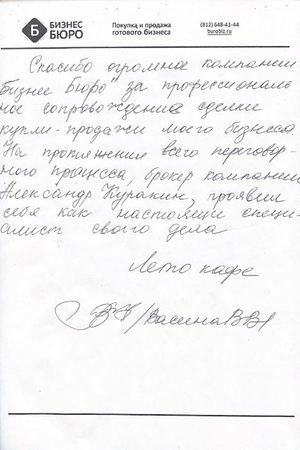 Б БИЗНЕС
БЮРО
Покупка и продажа
готового бизнеса
(812) 648-41-44
burobiz.ru
Спасибо огромное компании
бизнес Бюро за профессиональ
ное сопровождение сделки
купли-продажи моего бизнеса
На протяжении всего переговор-
ного процесса, брокер компании
Александр Куракин, проявил
себя как настоящий специ-
алист своего дела
Лето кафе
/Васина ВВ/